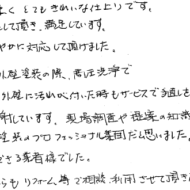 くとてもきれいな仕上りです。
して頂き、満足しています。
やかに対応して頂けました。
外壁塗装の際、高圧洗浄で
外壁に汚れが付いた時もサービスで手直しを
しています。現場調査や提案の知識
塗装のプロフェッショナル集団だと思いました。
できる業者様でした。
らもリフォーム等で相談、利用させて頂き